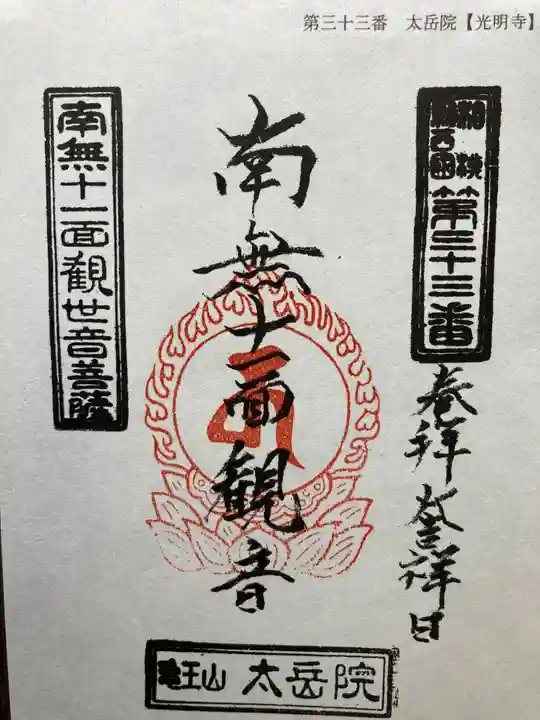 第三十三番　太岳院【光明寺】
相模
西国
第三十三番
奉拝 吉祥日
南無十一面観音
南無十一面観世音菩薩
龍王山 太岳院